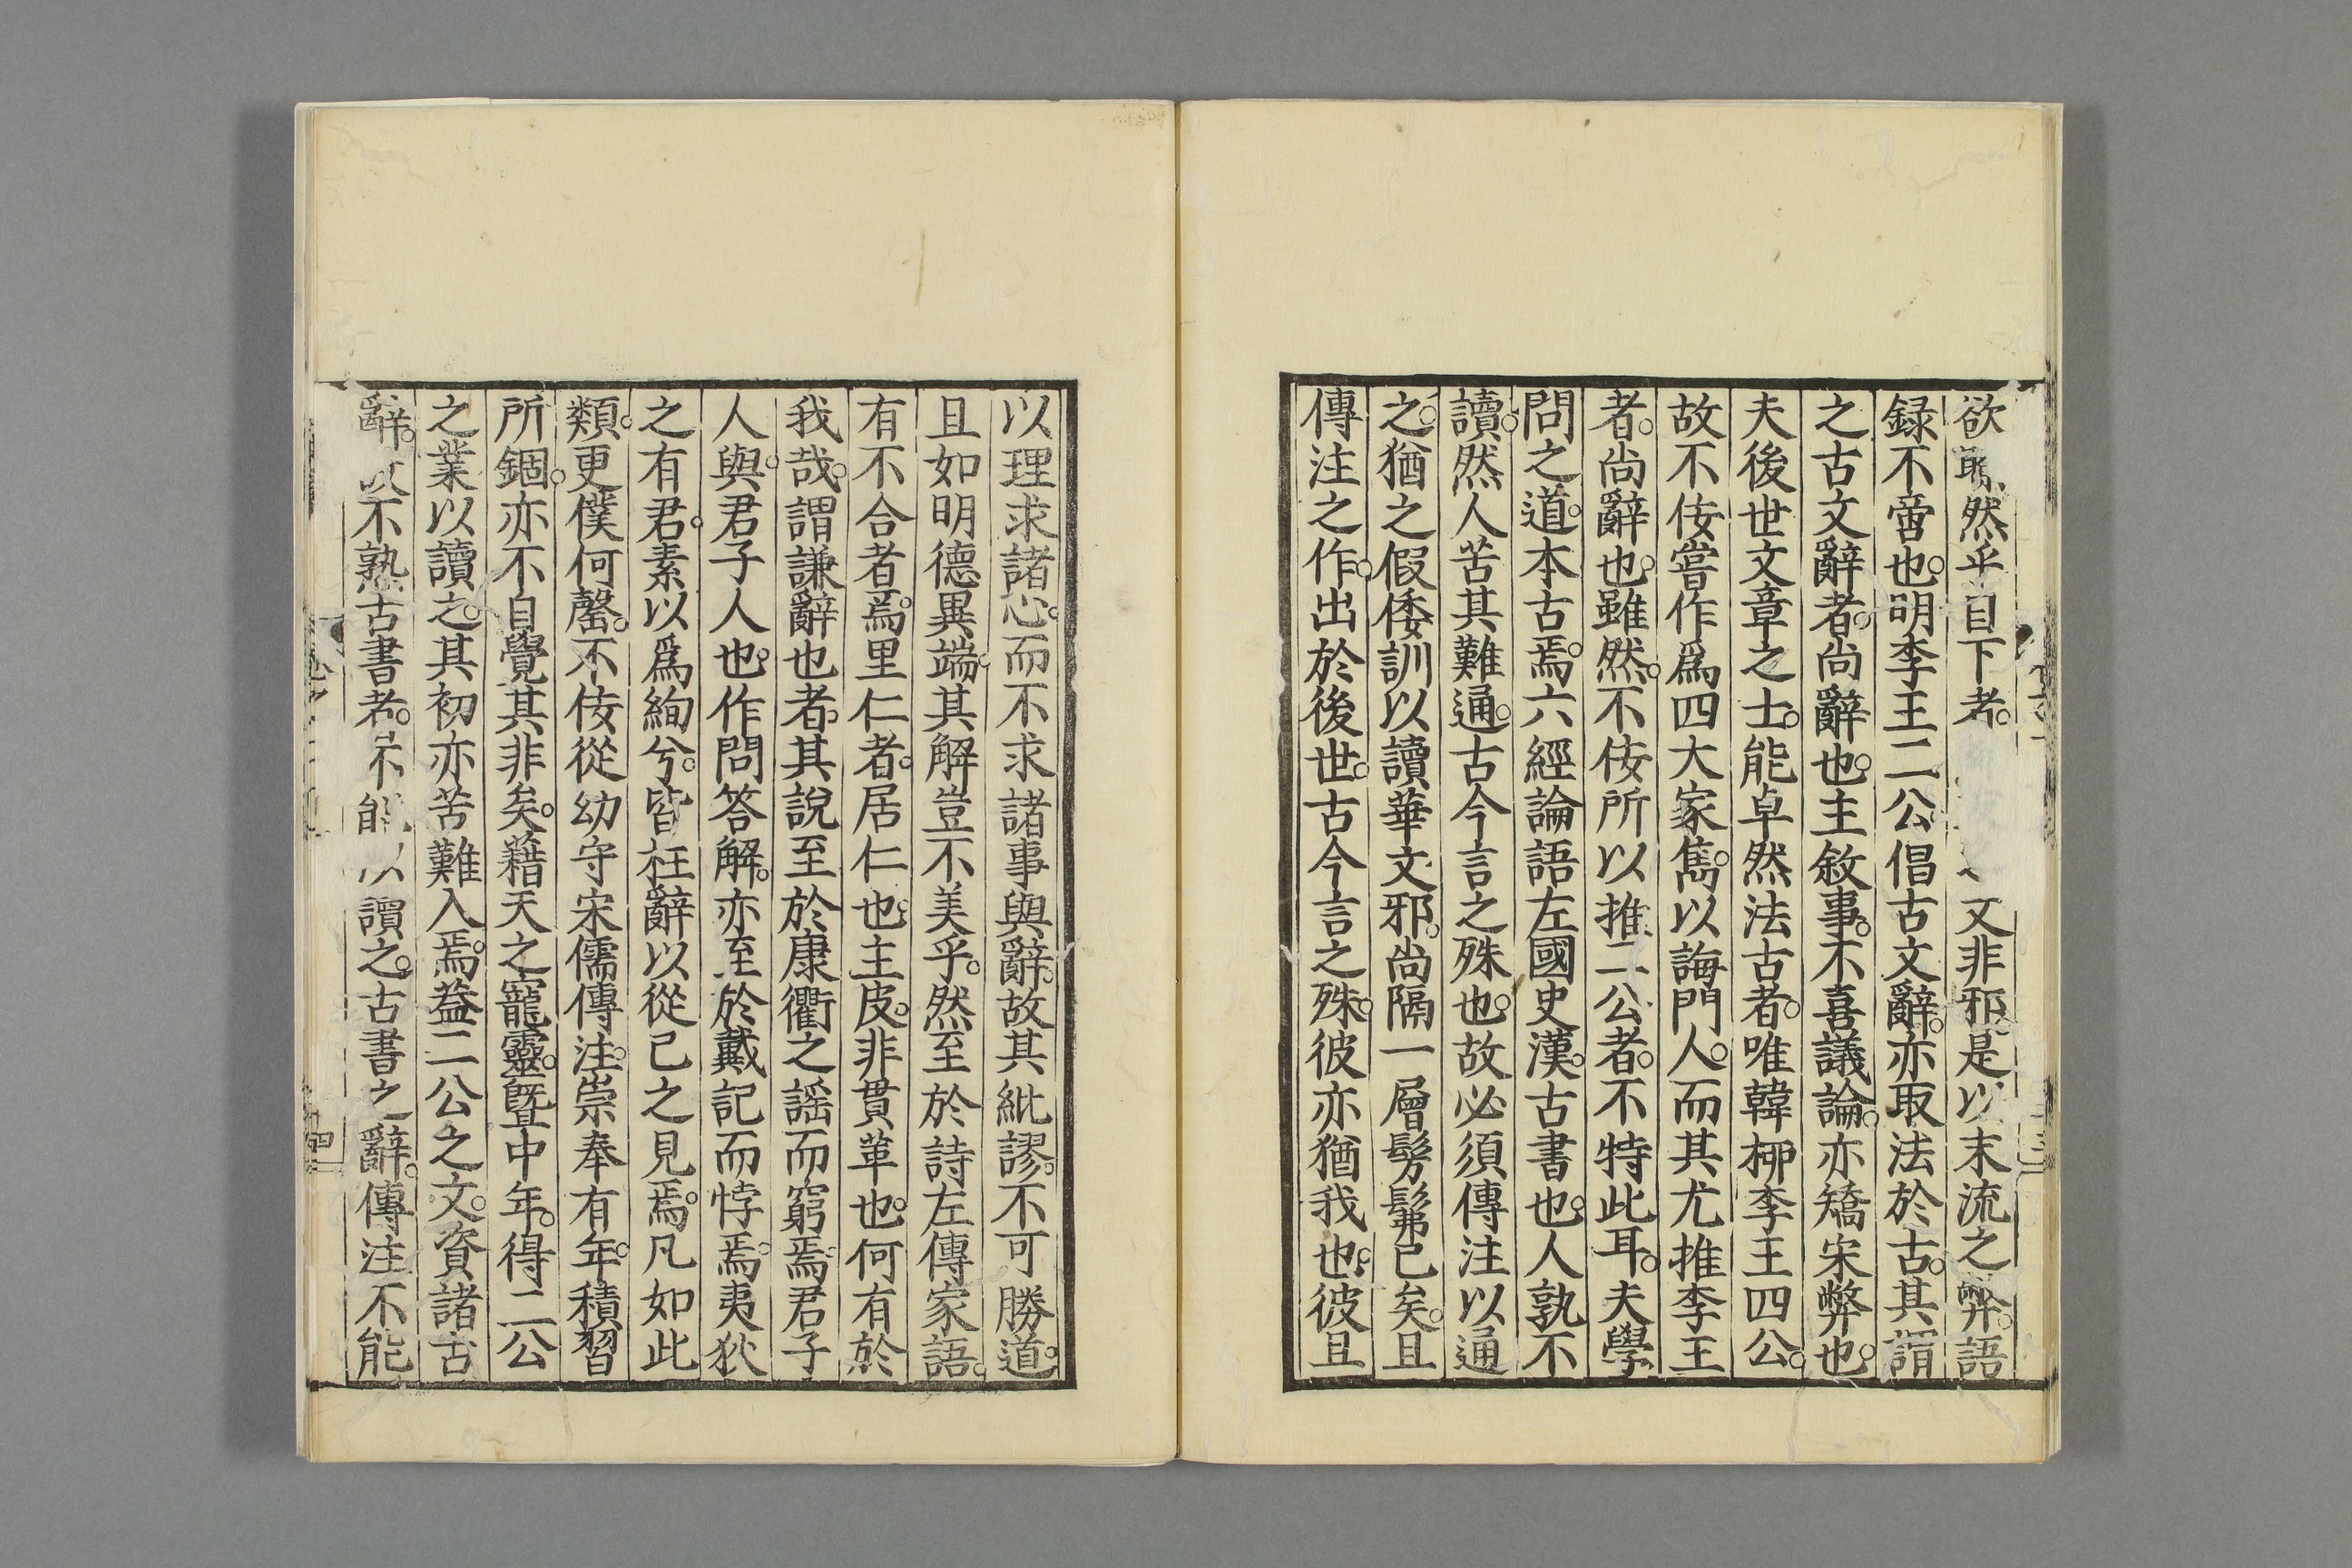 欲聒然乎目下者。文非邪是以末流之弊。語
録不啻也。明李王二公倡古文辭。亦取法於古。其謂
之古文辭者。尚辭也。主敘事。不喜議論。亦矯宋弊也。
夫後世文章之士。能卓然法古者。唯韓柳李王四公。
故不佞嘗作爲四大家雋。以誨門人。而其尤推李王
者。尚辭也。雖然。不佞所以推二公者。不特此耳。夫學
問之道。本古焉。六經論語左國史漢。古書也。人孰不
讀。然人苦其難通。古今言之殊也。故必須傳注以通
之。猶之假倭訓以讀華文邪。尚隔一層髣髴已矣。且
傳注之作。出於後世。古今言之殊。彼亦猶我也。彼且
以理求諸心。而不求諸事與辭。故其紕謬。不可勝道。
且如明德異端。其解豈不美乎。然至於詩左傳家語。
有不合者焉。里仁者。居仁也。主皮。非貫革也。何有於
我哉。謂謙辭也者。其說至於康衢之謡而窮焉。君子
人與。君子人也。作問答解。亦至於戴記而悖焉。夷狄
之有君。素以爲絢兮。皆枉辭以從己之見焉。凡如此
類。更僕何罄。不佞從幼守宋儒傳注。崇奉有年。積習
所錮。亦不自覺其非矣。藉天之寵靈。曁中年。得二公
之業以讀之。其初亦苦難入焉。葢二公之文。資諸古
辭。故不熟古書者。不能以讀之。古書之辭。傳注不能
四